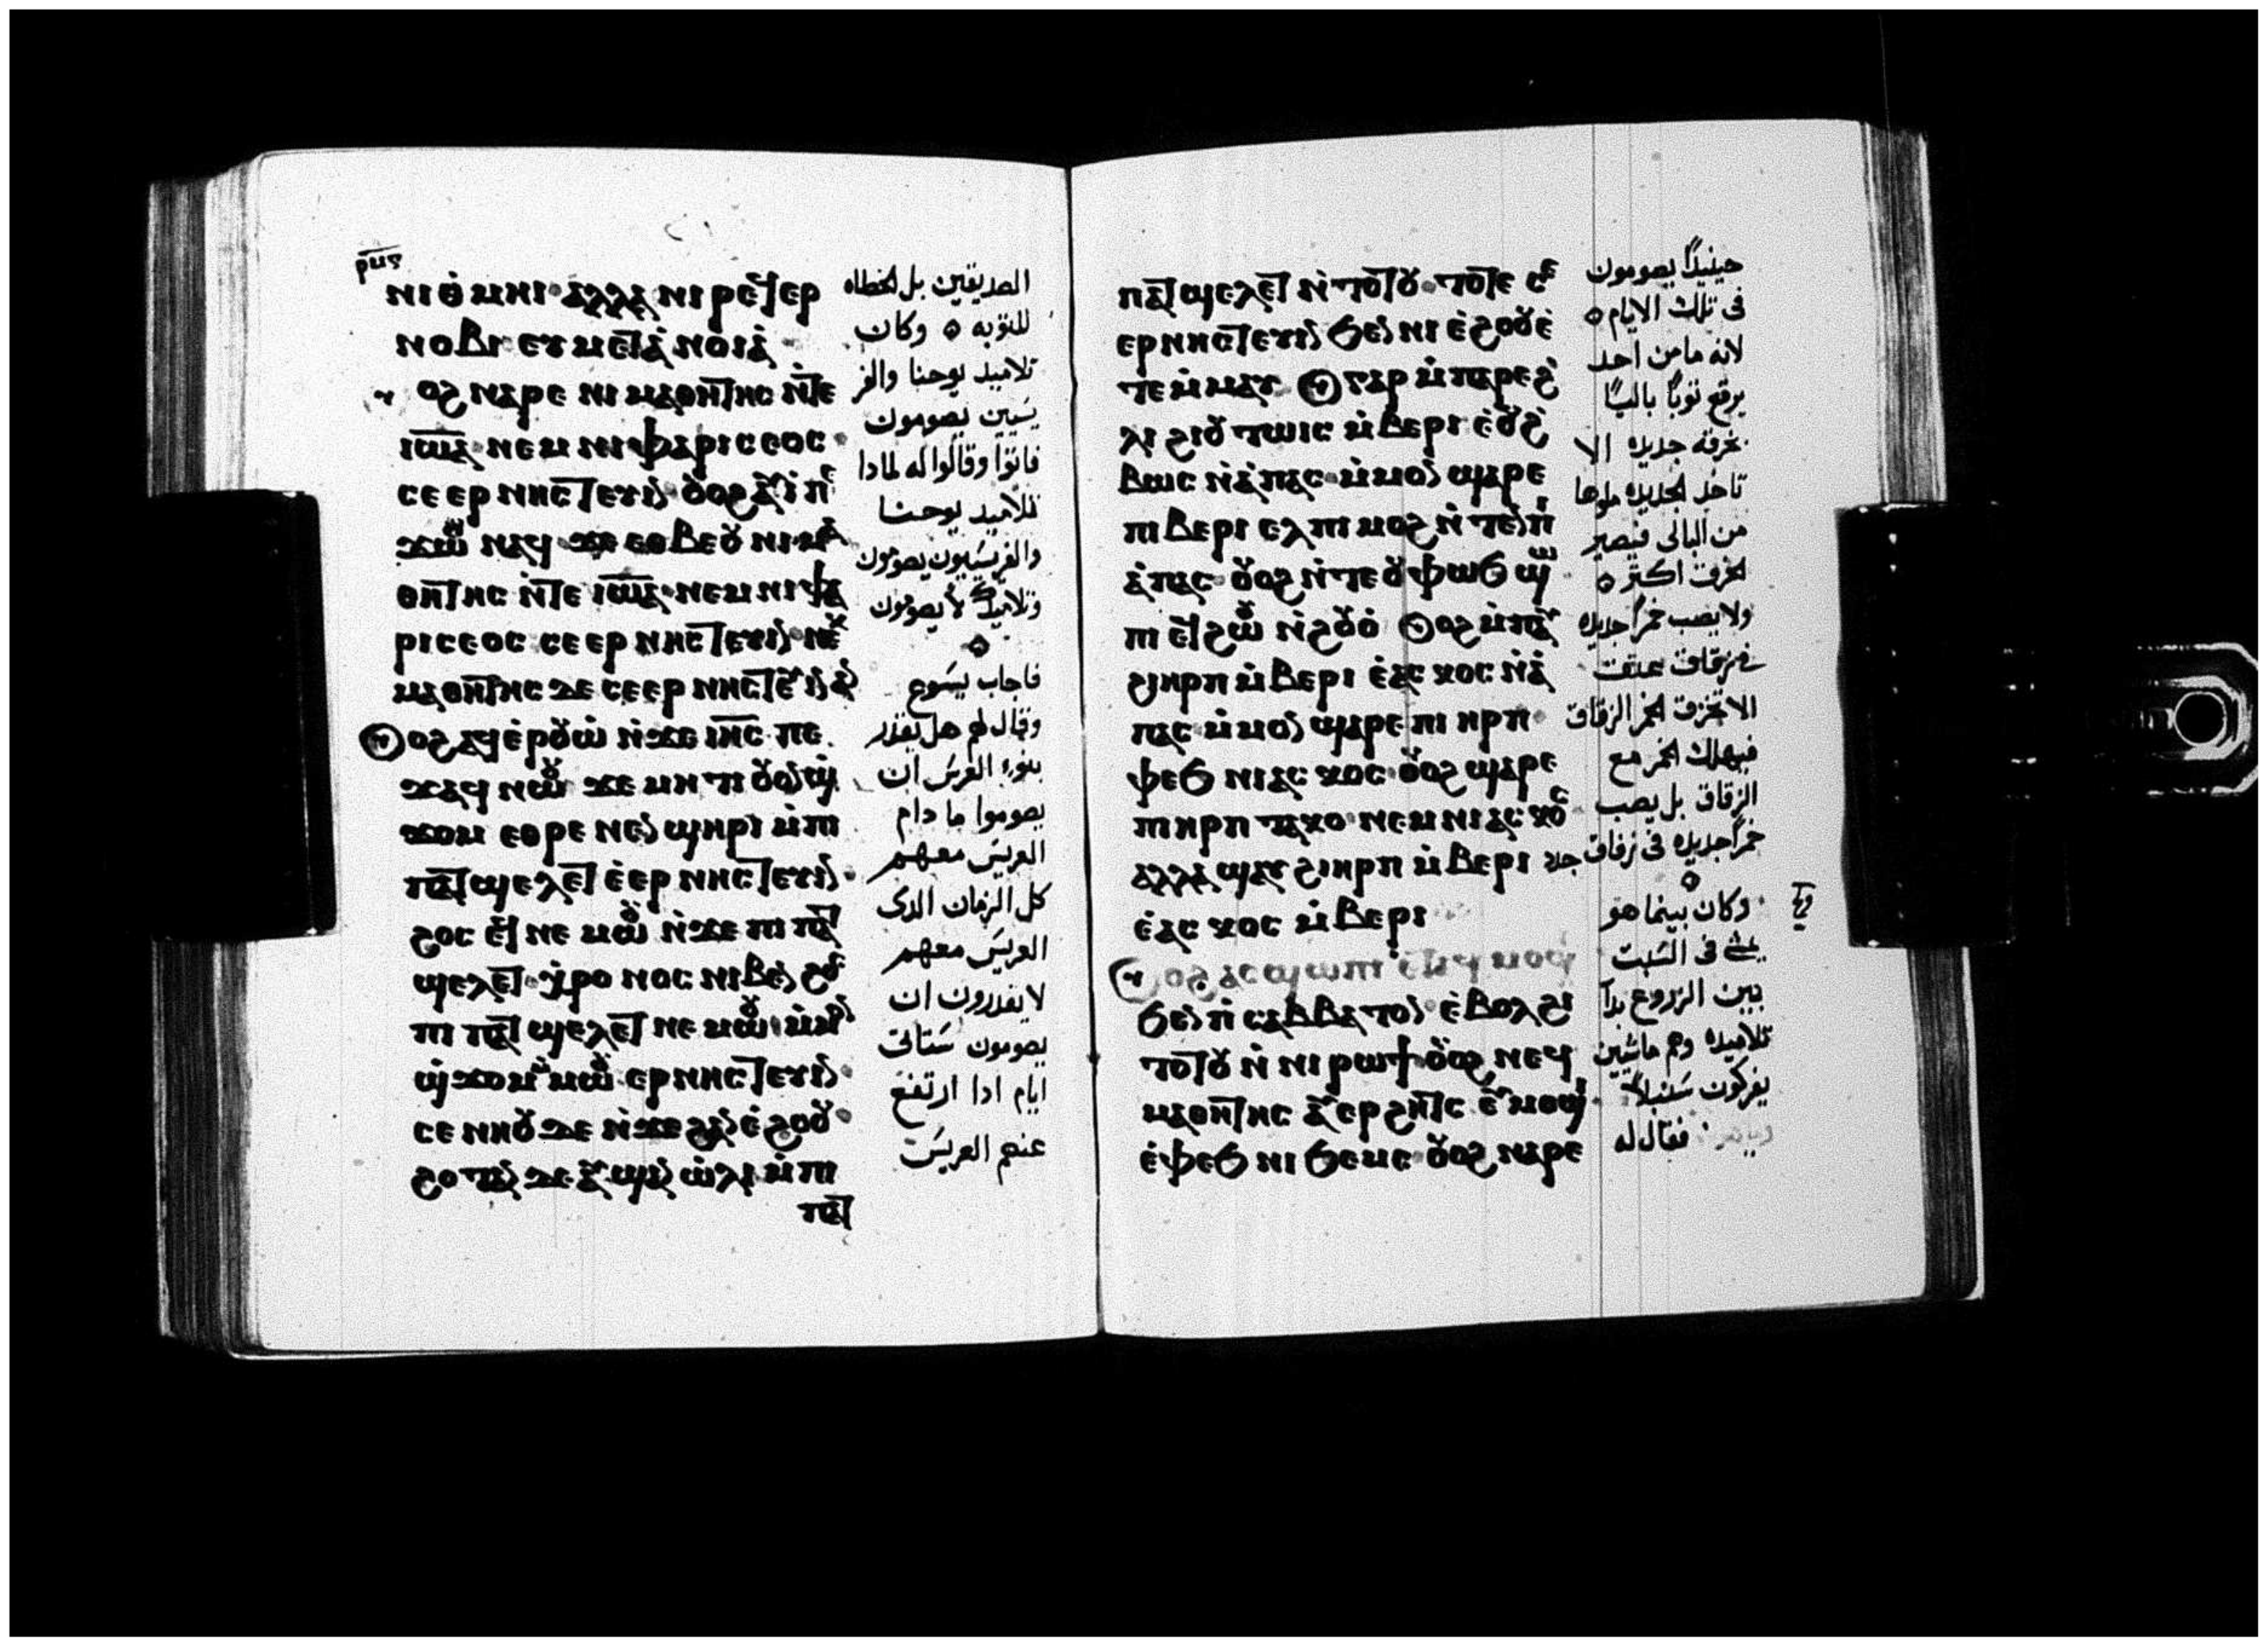 ⲣⲙⲋ
ⲛⲓⲑⲙⲏⲓ ⲁⲗⲗⲁ ⲛⲓⲣⲉϥⲉⲣ
ⲛⲟⲃⲓ ⲉⲩⲙⲉⲧⲁⲛⲟⲓⲁ
ⲟϩ ⲛⲁⲣⲉ ⲛⲓⲙⲁⲑⲏⲧⲏⲥ ⲛⲧⲉ
ⲓⲱⲁ ⲛⲉⲙ ⲛⲓⲫⲁⲣⲓⲥⲉⲟⲥ
ⲥⲉⲉⲣⲛⲏⲥⲧⲉⲩⲓⲛ
ⲛⲁϥ ϫⲉ ⲉⲑⲃⲉⲟⲩ ⲛⲓⲙⲁ
ⲑⲏⲧⲏⲥ ⲛⲧⲉ ⲓⲱⲁ ⲛⲉⲙ ⲛⲓⲫⲁ
ⲣⲓⲥⲉⲟⲥ ⲥⲉⲉⲣⲛⲏⲥⲧⲉⲩⲓⲛ ⲛⲉⲕ
ⲙⲁⲑⲏⲧⲏⲥ ⲇⲉ ⲥⲉⲉⲣⲛⲏⲥⲧⲉⲩⲓⲛ ⲁⲛ
ⲟϩ ⲁϥⲉⲣⲟⲩⲱ ⲛϫⲉ ⲓⲏⲥ ⲡⲉ
ϫⲁϥ ⲛⲱⲟⲩ ϫⲉ ⲙⲏ ⲧⲓ ⲟⲩⲟⲛϣ
ϫⲟⲙ ⲉⲑⲣⲉ ⲛⲉⲛϣⲏⲣⲓ ⲙⲡⲓ
ⲡⲁⲧϣⲉⲗⲉⲧ ⲉⲉⲣⲛⲏⲥⲧⲉⲩⲓⲛ
ϩⲟⲥ ⲉϥⲛⲉⲙⲱⲟⲩ ⲛϫⲉ ⲡⲓⲡⲁⲧ
ϣⲉⲗⲉⲧ ⲭⲣⲟⲛⲟⲥ ⲛⲓⲃⲉⲛ
ⲡⲓⲡⲁⲧϣⲉⲗⲉⲧ ⲛⲉⲙⲱⲟⲩ ⲙⲙⲟⲛ
ϣϫⲟⲙ ⲙⲙⲱⲟⲩ ⲉⲣⲛⲏⲥⲧⲉⲩⲓⲛ
ⲥⲉⲛⲏⲟⲩ ⲇⲉ ⲛϫⲉ ϩⲁⲛⲉϩⲟⲟⲩ
ϩⲟⲧⲁⲛ ⲇⲉ ⲁⲩϣⲁⲛⲱⲗⲓ ⲙⲡⲓ
ⲡⲁⲧ
الصديقين بل الخطاه
للتوبه ه وكان
تلاميذ يوحنا والفر
يسيين يصومون
فاتوا وقالوا له لمادا
تلاميد يوحنا
والفريسيون يصومون
وتلاميدك لا يصومون
فاجاب يسوع
وقال لهم هل يقدر
بنوا العرس ان
يصوموا ما دام
العريس معهم
كل الزمان الدى
العريس معهم
لا يقدرون ان
يصومون ستاتى
ايام ادا ارتفع
عنهم العريس
ⲡⲁⲧϣⲉⲗⲉⲧ ⲛⲧⲟⲧⲟⲩ ⲧⲟⲧⲉ ⲥⲉ
ⲉⲣⲛⲏⲥⲧⲉⲩⲓⲛ ϧⲉⲛ ⲛⲓⲉϩⲟⲟⲩ ⲉ
ⲧⲉⲙⲙⲁⲩ ⲅⲁⲣ ⲙⲡⲁⲣⲉϩ
ⲗⲓ ϩⲓⲟⲩ ⲧⲱⲓⲥ ⲙⲃⲉⲣⲓ ⲉⲟⲩϩ
ⲃⲱⲥ ⲛⲁⲡⲁⲥ ⲙⲙⲟⲛ ϣⲁⲣⲉ
ⲡⲓⲃⲉⲣⲓ ⲉⲗ ⲡⲓⲙⲟϩ ⲛⲧⲉⲛⲡⲓ
ⲁⲡⲁⲥ ⲟⲩⲟϩ ⲛⲧⲉⲟⲩⲫⲱϧ ϣⲱ
ⲡⲓ ⲉϥϩⲱⲟⲩ ⲛϩⲟⲩⲟ ⲟϩ ⲙⲡⲁⲩ
ϩⲓⲏⲣⲡ ⲙⲃⲉⲣⲓ ⲉⲁⲥⲕⲟⲥ ⲛⲁ
ⲡⲁⲥ ⲙⲙⲟⲛ ϣⲁⲣⲉ ⲡⲓⲏⲣⲡ
ⲫⲉϧ ⲛⲓⲁⲥⲕⲟⲥ ⲟⲩⲟϩ ϣⲁⲣⲉ
ⲡⲓⲏⲣⲡ ⲧⲁⲕⲟ ⲛⲉⲙ ⲛⲓⲁⲥⲕⲟⲥ
ⲁⲗⲗⲁ ϣⲁⲩϩⲓⲏⲣⲡ ⲙⲃⲉⲣⲓ
ⲉⲁⲥⲕⲟⲥ ⲙⲃⲉⲣⲓ
ⲟϩ ⲁⲥϣⲱⲡⲓ ⲉϥⲙⲟϣ
ϧⲉⲛ ⲡⲥⲁⲃⲃⲁⲧⲟⲛ ⲉⲃⲟⲗ ϩⲓ
ⲧⲟⲧⲟⲩ ⲛⲛⲓⲣⲱϯ ⲟⲩⲟϩ ⲛⲉϥ
ⲙⲁⲑⲏⲧⲏⲥ ⲁⲩⲉⲣϩⲏⲧⲥ ⲉⲩⲙⲟϣⲓ
ⲉⲫⲉϧ ⲛⲓϧⲉⲙⲥ ⲟⲩⲟϩ ⲛⲁⲣⲉ
حينيدا يصومون
فى تلك الايام ه
لانه ما من احد
يرقع ثوبا باليا
بخرقه جديده الا
تاخد الجديده ملوها
من البالى فيصير
الخرق اكتر ه
ولا يصب خمرا جديده
فى زقاق عتق
الا تخرق الخمر الزقاق
فيهلك الخمر مع
الزقاق بل يصب
خمرا جديده فى زقاق جدد
وكان بينما هو
يمشى فى السبت
بين الزروع بدا
تلاميده وهم ماشيين
يفركون سنبلا
فقال له